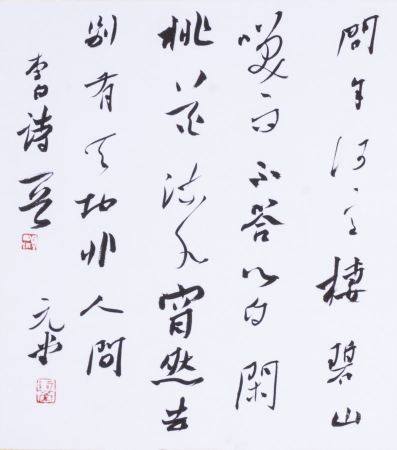 問余何意棲碧山
笑而不答心自閑
桃花流水窅然去
別有天地非人間
李白詩
元